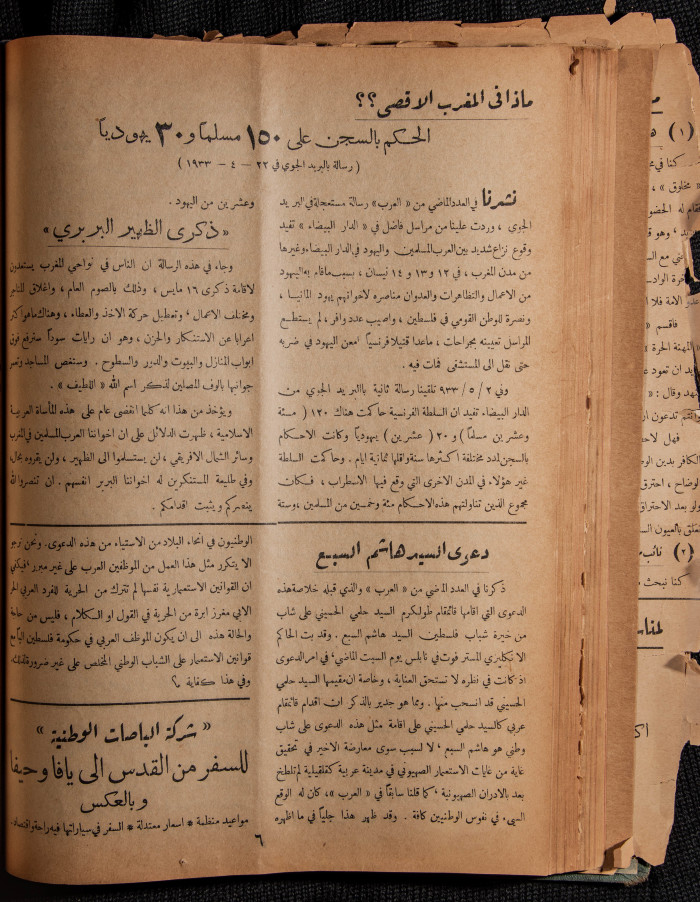 ماذا في المغرب الاقصى ؟؟
الحكم بالسجن على ١٥٠ مسلماً و ٣٠ يهودياً
( رسالة بالبريد الجوي في ٢٢ — ٤ — ١٩٣٣ )
نشرنا في العدد الماضي من « العرب » رسالة مستعجلة في البريد
الجوي ، وردت علينا من مراسل فاضل في « الدار البيضاء » تفيد
وقوع نزاع شديد بين العرب المسلمين واليهود في الدار البيضاء وغيرها
من مدن المغرب ، في ١٢ و ١٣ و ١٤ نيسان ، بسبب ما قام به اليهود
من الاعمال والتظاهرات والعدوان مناصره لاخوانهم يهود المانيا ،
ونصرة للوطن القومي في فلسطين ، واصيب عدد وافر ، لم يستطع
المراسل تعيينه بجراحات ، ماعدا قتيلا فرنسياً امعن اليهود في ضربه
حتى نقل الى المستشفى فمات فيه .
وفي ٢ / ٥ / ٩٣٣ تلقينا رسالة ثانية بالبريد الجوي من
الدار البيضاء تفيد ان السلطة الفرنسية حاكمت هناك ١٢٠ ( مئة
وعشرين مسلماً ) و ٢٠ ( عشرين ) يهودياً وكانت الاحكام
بالسجن لمدد مختلفة اكثرها سنة واقلها ثمانية ايام . وحاكمت السلطة
غير هؤلاء في المدن الاخرى التي وقع فيها الاضطراب ، فكان
مجموع الذين تناولتهم هذه الاحكام مئة وخمسين من المسلمين ، وستة
وعشرين من اليهود .
« ذكرى الظهير البربري »
وجاء في هذه الرسالة ان الناس في نواحي المغرب يستعدون
لاقامة ذكرى ١٦ مايس ، وذلك بالصوم العام ، واغلاق المتاجر
ومختلف الاعمال ، وتعطيل حركة الاخذ والعطاء ، وهناك ماهو اكثر
اعرابا عن الاستنكار والحزن ، وهو ان رايات سوداً سترفع فوق
ابواب المنازل والبيوت والدور والسطوح . وستغص المساجد وتعمر
جوانبها بالوف المصلين لذكر اسم الله « اللطيف » .
ويؤخذ من هذا انه كلما انقضى عام على هذه المأساة العربية
الاسلامية ، ظهرت الدلائل على ان اخواننا العرب المسلمين في المغرب
وسائر الشمال الافريقي ، لن يستسلموا الى الظهير ، ولن يقروه بحال ،
وفي طليعة المستنكرين له اخواننا البربر انفسهم . ان تنصروا الله
ينصركم ويثبت اقدامكم .
دعوى السيد هاشم السبع
ذكرنا في العدد الماضي من « العرب » والذي قبله خلاصة هذه
الدعوى التي اقامها قائمقام طولكرم السيد حلمي الحسيني على شاب
من خيرة شباب فلسطين السيد هاشم السبع . وقد بت الحاكم
الانكليزي المستر فوت في نابلس يوم السبت الماضي ، في امر الدعوى
اذ كانت في نظره لا تستحق العناية ، وخاصة ان مقيمها السيد حلمي
الحسيني قد انسحب منها . ومما هو جدير بالذكر ان اقدام قائمقام
عربي كالسيد حلمي الحسيني على اقامة مثل هذه الدعوى على شاب
وطني هو هاشم السبع ، لا لسبب سوى معارضة الاخير في تحقيق
غاية من غايات الاستعمار الصهيوني في مدينة عربية كقلقيلية لم تلطخ
بعد بالادران الصهيونية ، كما قلنا سابقاً في « العرب » ، كان له الوقع
السيء في نفوس الوطنيين كافة . وقد ظهر هذا جلياً في ما اظهره
الوطنيون في انحاء البلاد من الاستياء من هذه الدعوى . ونحن نرجو
الا يتكرر مثل هذا العمل من الموظفين العرب على غير مبرر ،
ان القوانين الاستعمارية نفسها لم تترك من الحرية للفرد العربي الحر
الابي مغرز ابرة من الحرية في القول او الكلام ، فليس من حاجة
والحالة هذه الى ان يكون الموظف العربي في حكومة فلسطين
قوانين الاستعمار على الشباب الوطني المخلص على غير ضرورة
وفي هذا كفاية
« شركة الباصات الوطنية »
للسفر من القدس الى يافا وحيفا
وبالعكس
مواعيد منظمة * اسعار معتدلة * السفر في سياراتها فيه راحة واقتصاد
٦